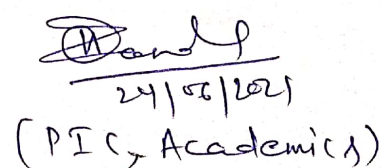 24/06/2021
(PIC, Academics)